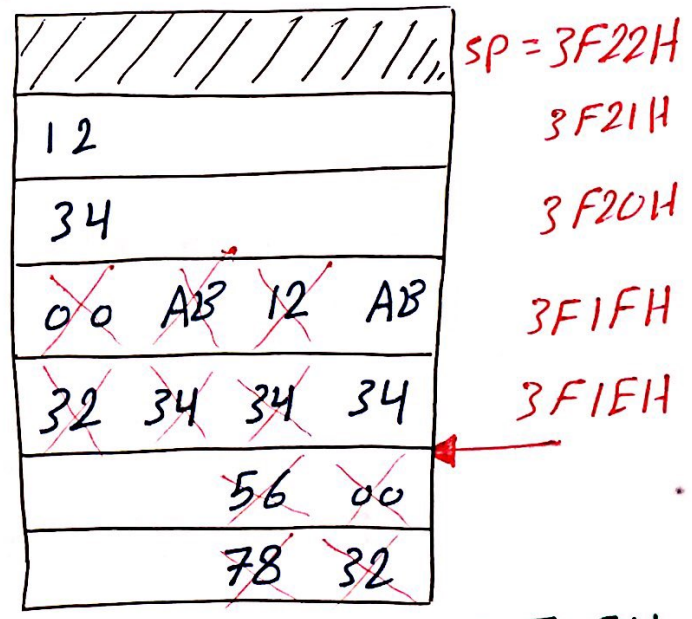 SP = 3F22H
12 3F21H
34 3F20H
00 AB 12 AB 3F1FH
32 34 34 34 3F1EH
56 00
78 32